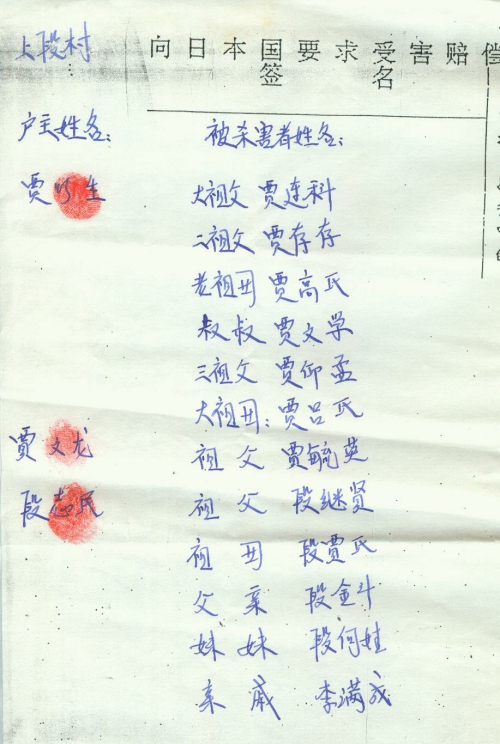 上段村
向日本国要求受害赔偿
签名
户主姓名：
被杀害者姓名：
贾生
大祖父 贾连科
二祖父 贾存存
老祖母 贾高氏
叔叔 贾文学
三祖父 贾仰孟
大祖母：贾吕氏
贾文龙
祖父 贾毓英
段志民
祖父 段继贤
祖母 段贾氏
父亲 段金斗
妹妹 段何娃
亲戚 李满成